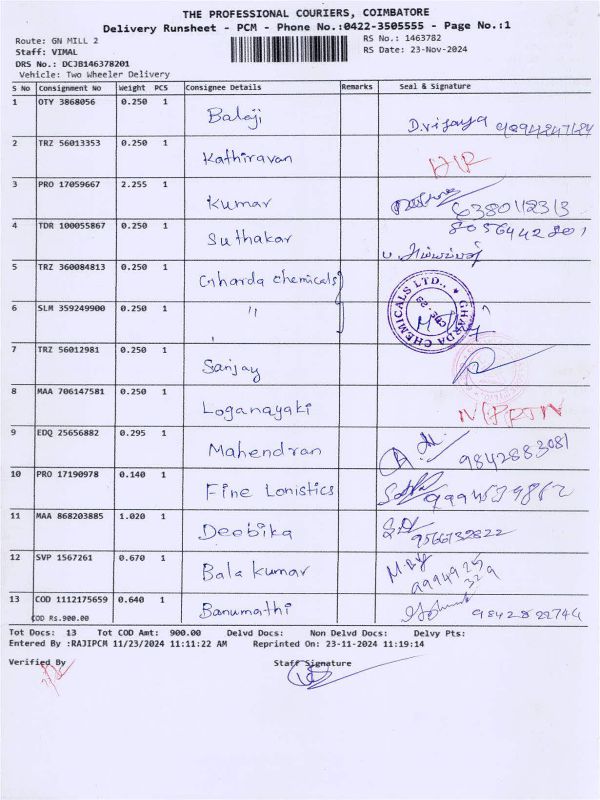 THE PROFESSIONAL COURIERS, COIMBATORE
Delivery Runsheet - PCM - Phone No.:0422-3505555 - Page No.:1
Route: GN MILL 2 RS No.: 1463782
Staff: VIMAL RS Date: 23-Nov-2024
DRS No.: DCJB146378201
Vehicle: Two Wheeler Delivery
S No Consignment No Weight PCS Consignee Details Remarks Seal & Signature
1 OTY 3868056 0.250 1 Balaji D.vijaya
2 TRZ 56013353 0.250 1 Kathiravan
3 PRO 17059667 2.255 1 Kumar 6380112313
4 TDR 100055867 0.250 1 Suthakar 8056442801
5 TRZ 360084813 0.250 1 Gharda chemicals GHARDA CHEMICALS LTD.,
6 SLM 359249900 0.250 1 "
7 TRZ 56012981 0.250 1 Sanjay
8 MAA 706147581 0.250 1 Loganayaki
9 EDQ 25656882 0.295 1 Mahendran 9842883081
10 PRO 17190978 0.140 1 Fine Lonistics
11 MAA 868203885 1.020 1 Deebika
12 SVP 1567261 0.670 1 Bala kumar 9994925
329
13 COD 1112175659 0.640 1 Banumathi 9842822744
COD Rs.900.00
Tot Docs: 13 Tot COD Amt: 900.00 Delvd Docs: Non Delvd Docs: Delvy Pts:
Entered By :RAJIPCM 11/23/2024 11:11:22 AM Reprinted On: 23-11-2024 11:19:14
Verified By Staff Signature